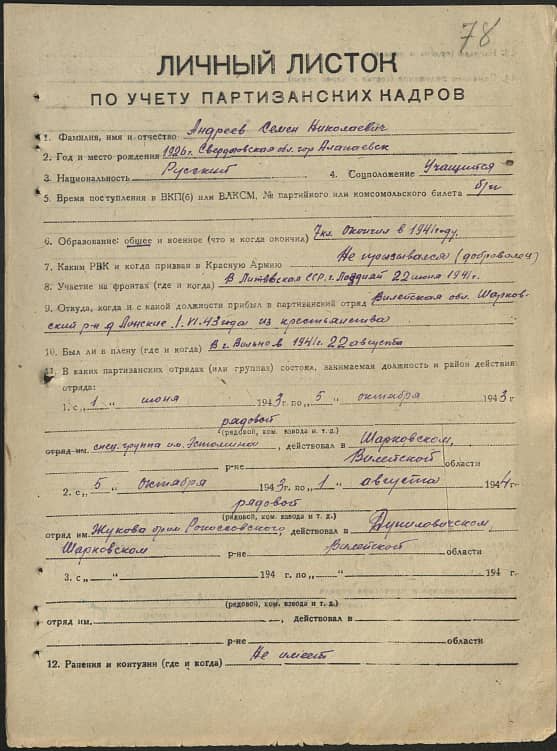 78
ЛИЧНЫЙ ЛИСТОК
ПО УЧЕТУ ПАРТИЗАНСКИХ КАДРОВ
1. Фамилия, имя и отчество Андреев Семен Николаевич
2. Год и место рождения 1926 г. Свердловская обл. гор Алапаевск
3. Национальность Русский 4. Соцположение Учащийся
5. Время поступления в ВКП(б) или ВЛКСМ, № партийного или комсомольского билета б/п
6. Образование: общее и военное (что и когда окончил) 7 кл. Окончил в 1941 году.
7. Каким РВК и когда призван в Красную Армию Не призывался (доброволец)
8. Участие на фронтах (где и когда) В Литовская ССР, г. 22 июня 1941 г.
9. Откуда, когда и с какой должности прибыл в партизанский отряд Вилейская обл. Шарков-
ский р-н д. 1.VI.43 года из крестьянства
10. Был ли в плену (где и когда) В г. Вольне в 1941 г. 22 августа
11. В каких партизанских отрядах (или группах) состоял, занимаемая должность и район действия
отряда:
1. с „1“ июня 1943 г. по „5“ октября 1943 г
рядовой
(рядовой, ком. взвода и т. д.)
отряд им. спец. группа им. , действовал в Шарковском,
р-не Вилейской области
2. с „5“ октября 1943 г. по „1“ августа 1944 г.
рядовой
(рядовой, ком. взвода и т. д.)
отряд им. Жукова бриг. Рокоссовского, действовал в Дуниловичском,
Шарковском р-не Вилейской области
3. с „ “ 194 г. по „ “ 194 г.
(рядовой, ком. взвода и т. д.)
отряд им. , действовал в
р-не области
12. Ранения и контузии (где и когда) Не имеет